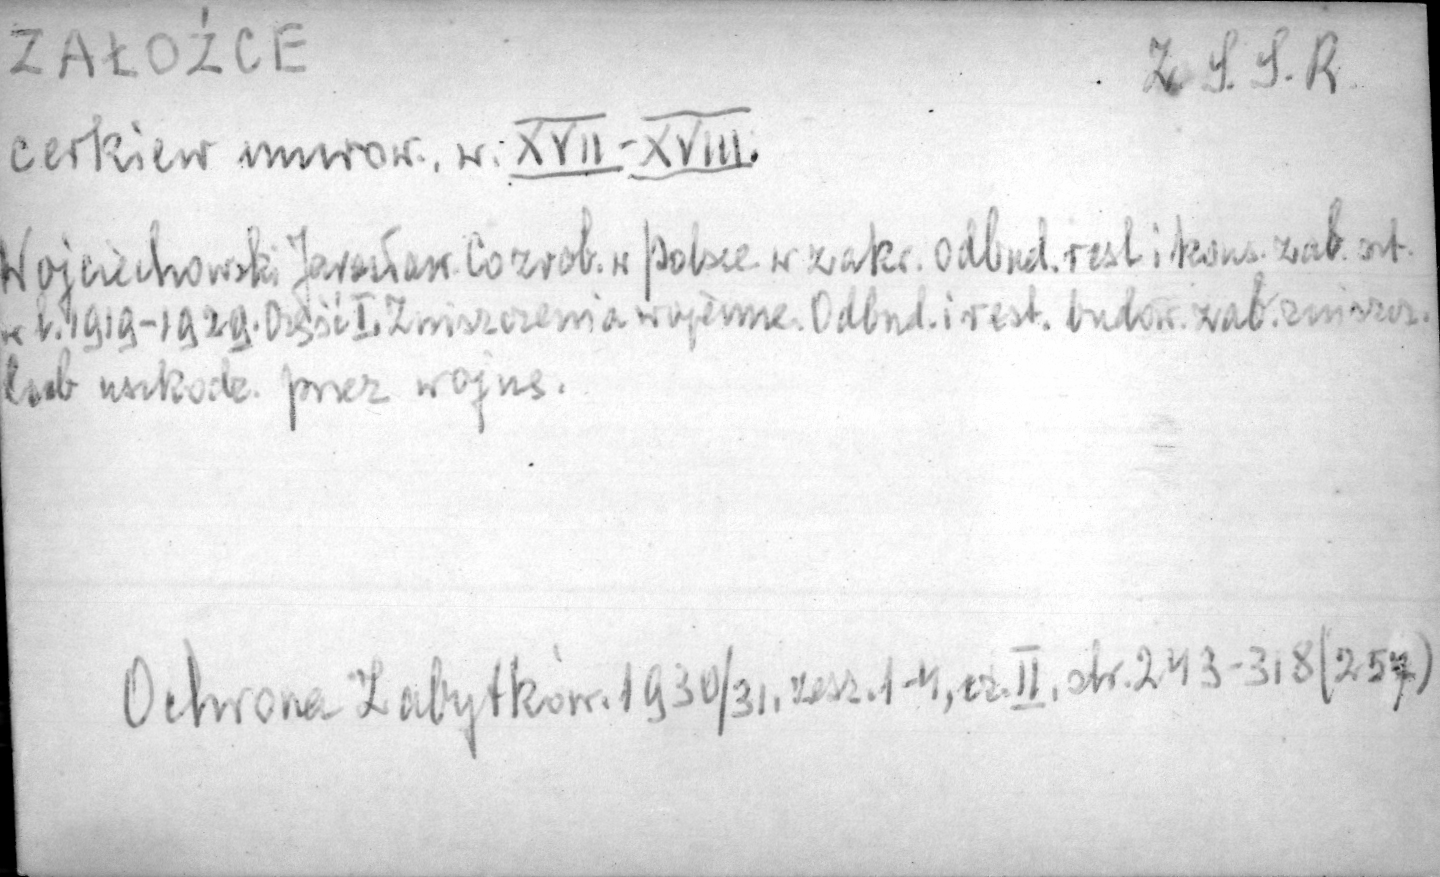 ZAŁOŹCE
Z. S. S. R.
cerkiew murow., w. XVII-XVIII.
Wojciechowski Jarosław. Co zrob. w Polsce w zakr. odbud. rest. i kons. zab. szt.
w l. 1919-1929. Część I. Zniszczenia wojenne. Odbud. i rest. budow. zab. zniszcz.
lub uszkodz. przez wojnę.
Ochrona Zabytków. 1930/31, zesz. 1-4, cz. II, str. 243-318 (257)